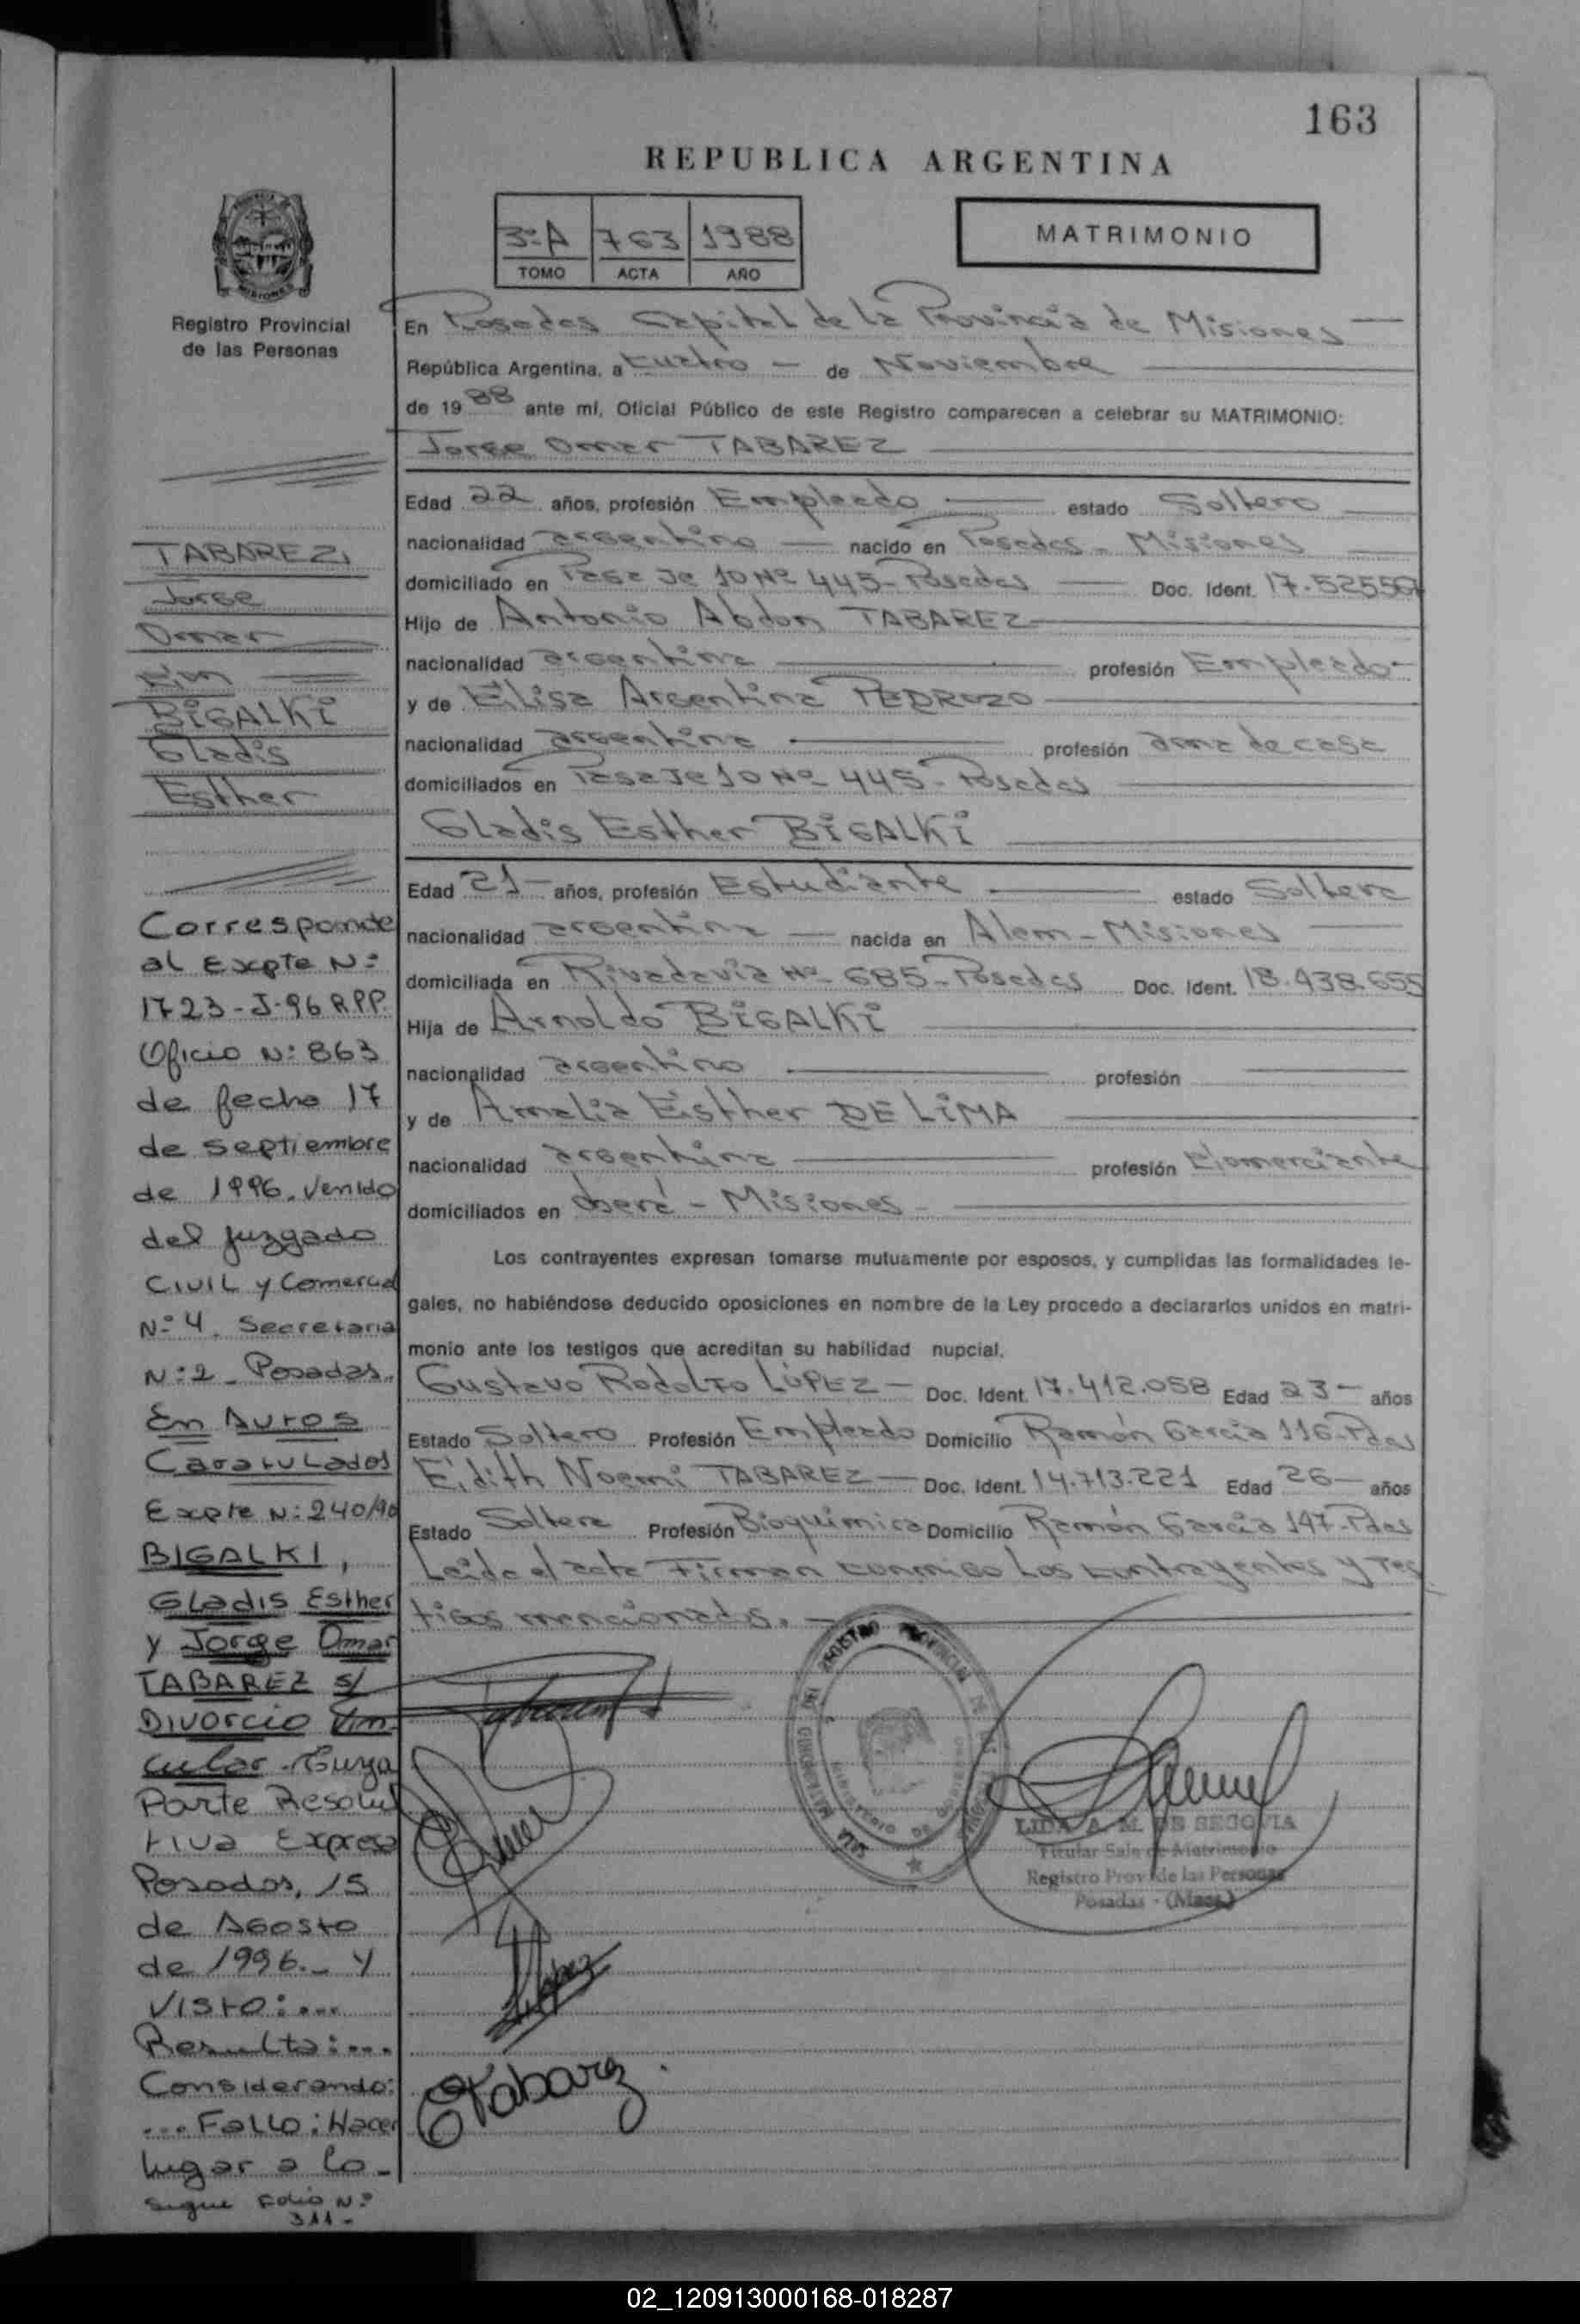 163
REPUBLICA ARGENTINA
3º A 763 1988
TOMO ACTA AÑO
MATRIMONIO
Registro Provincial
de las Personas
En Posadas Capital de la Provincia de Misiones
República Argentina, a Cuatro - de Noviembre
de 1988 ante mí, Oficial Público de este Registro comparecen a celebrar su MATRIMONIO:
Jorge Omar TABAREZ
Edad 22 años, profesión Empleado estado Soltero
nacionalidad argentino nacido en Posadas - Misiones
domiciliado en Pasaje 10 Nº 445 - Posadas Doc. Ident.
Hijo de Antonio Abdon TABAREZ
nacionalidad argentina profesión Empleado
y de Elisa Argentina PEDROZO
nacionalidad argentina profesión ama de casa
domiciliados en Pasaje 10 Nº 445 - Posadas
Gladis Esther BIGALKI
Edad 21 - años, profesión Estudiante estado Soltera
nacionalidad argentina nacida en Alem - Misiones
domiciliada en Rivadavia Nº 685 - Posadas Doc. Ident. 18.438.655
Hija de Arnoldo BIGALKI
nacionalidad argentino profesión
y de Amalia Esther DE LIMA
nacionalidad argentina profesión Comerciante
domiciliados en Oberá - Misiones -
Los contrayentes expresan tomarse mutuamente por esposos, y cumplidas las formalidades le-
gales, no habiéndose deducido oposiciones en nombre de la Ley procedo a declararlos unidos en matri-
monio ante los testigos que acreditan su habilidad nupcial.
Gustavo Rodolfo LÓPEZ - Doc. Ident. 17.412.058 Edad 23 - años
Estado Soltero Profesión Empleado Domicilio Ramón García 116 - Pdas
Edith Noemi TABAREZ - Doc. Ident. 14.713.221 Edad 26 - años
Estado Soltera Profesión Bioquimica Domicilio Ramón García 147 - Pdas
Leida el acta Firman conmigo los contrayentes y tes
tigos mencionados. -
TABAREZ,
Jorge
Omar
con
BIGALKI
Gladis
Esther
Corresponde
al Expte Nº
1723-J-96 R.P.P.
Oficio Nº 863
de fecha 17
de septiembre
de 1996. Venido
del Juzgado
Civil y Comercial
Nº 4. Secretaria
Nº 2 - Posadas.
En Autos
Caratulados
Expte Nº 240/90
BIGALKI,
Gladis Esther
y Jorge Omar
TABAREZ s/
Divorcio Vin-
cular - Cuya
Parte Resolu
tiva Expresa
Posadas, 15
de Agosto
de 1996. - Y
Visto: ...
Resulta: ...
Considerando:
... Fallo: Hacer
lugar a lo -
sigue Folio Nº
311 -
Tabarez
López
ETabarez.
LIDA A. M. DE SEGOVIA
Titular Sala de Matrimonio
Registro Prov. de las Personas
Posadas - (Mnes.)
02_120913000168-018287